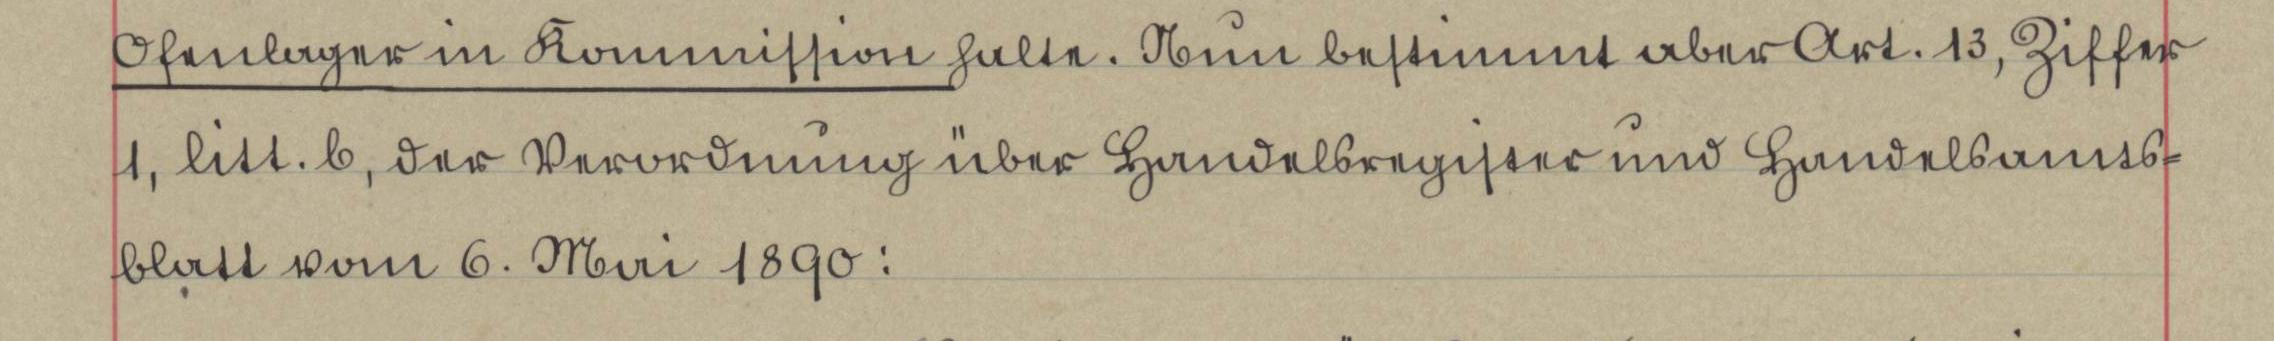 Ofenlager in Kommission halte. Nun bestimmt aber Art. 13, Ziffer
1, litt. b, der Verordnung über Handelsregister und Handelsamts-
blatt vom 6. Mai 1890: